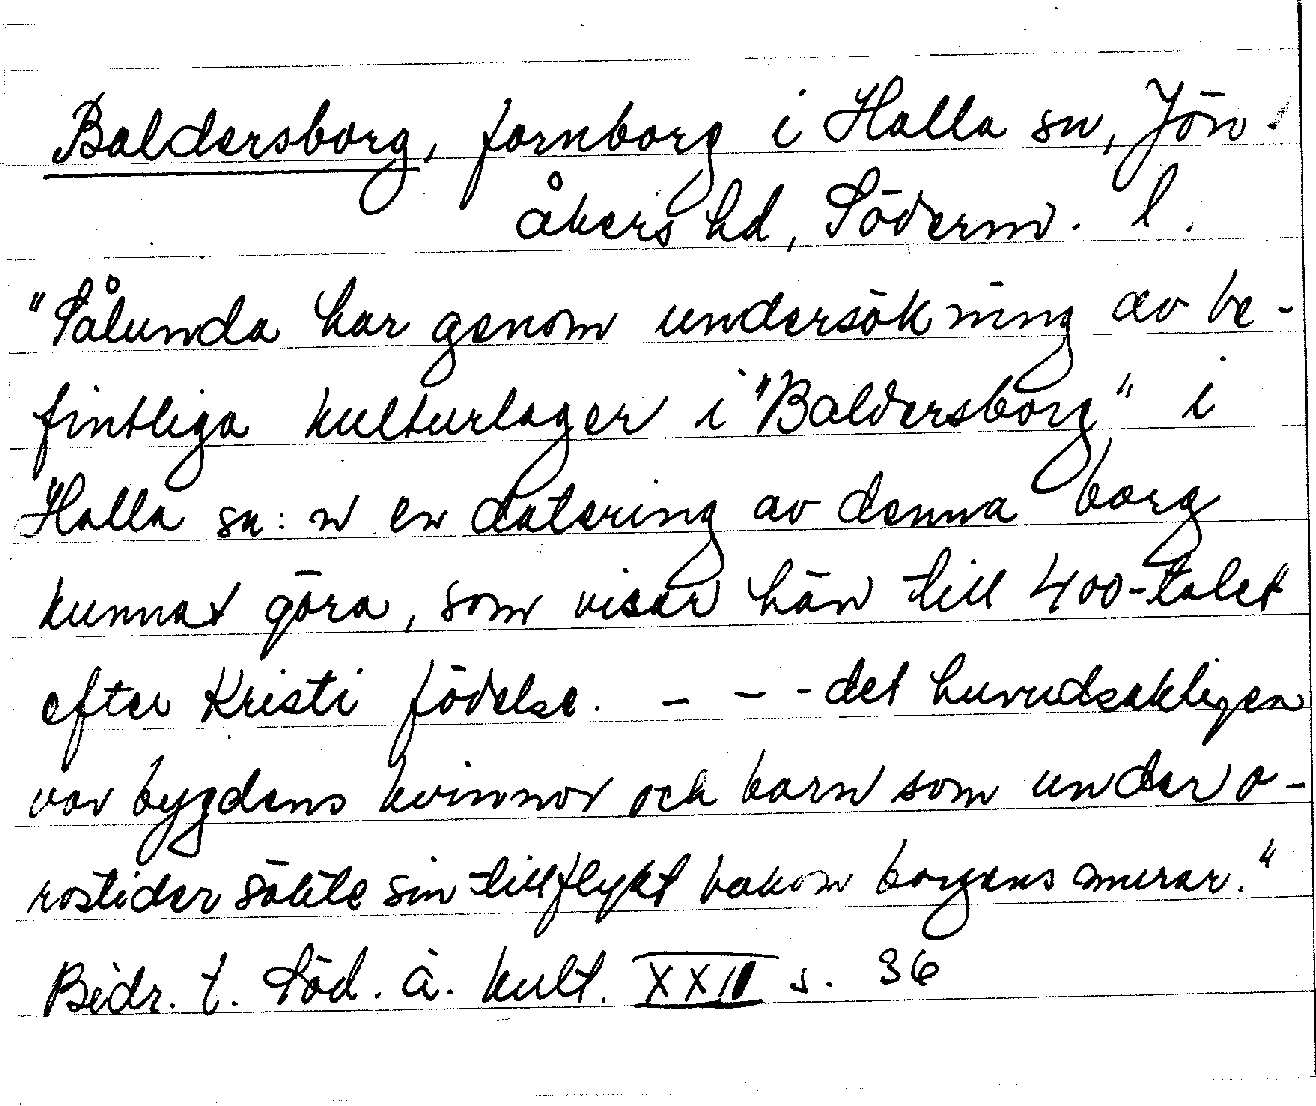 Baldersborg, fornborg i Halla sn, Jön-
åkers hd, Söderm. l.
"Sålunda har genom undersökning av be-
fintliga kulturlager i "Baldersborg" i
Halla sn: n en datering av denna borg
kunnat göra, som visar hän till 400-talet
efter Kristi födelse. - - - det huvudsakligen
var bygdens kvinnor och barn som under o-
rostider sökte sin tillflykt bakom borgens murar."
Bidr. t. Söd. ä. kult. XXIII s. 36